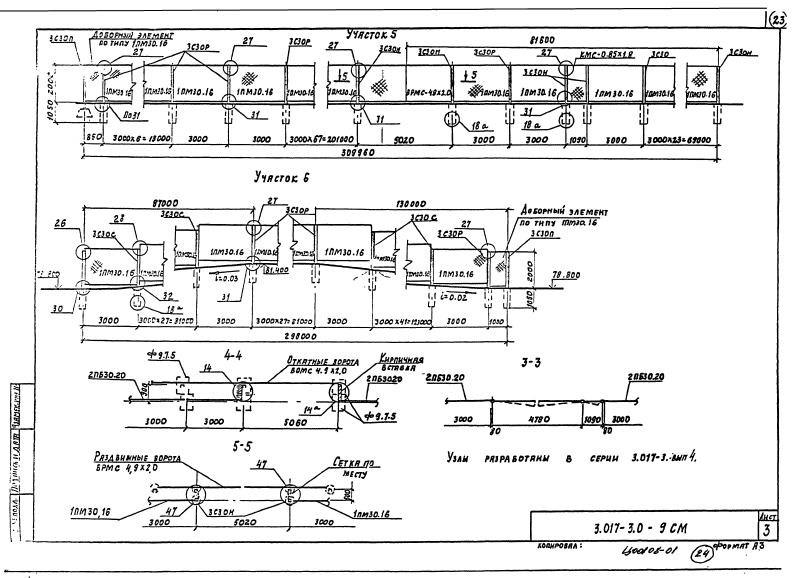 23
Участок 5
3СЗОП
ДОБОРНЫЙ ЭЛЕМЕНТ
ПО ТИПУ 1ПМ30.16
27
3СЗОР
27
3СЗОР
27
3СЗОН
81600
3СЗОН
3СЗОР
27
КМС-0.85х1.8
3СЗОН
3СЗО
3СЗОН
5
5
1ПМ30.16
1ПМ30.16
1ПМ30.16
1ПМ30.16
1ПМ30.16
ВРМС-4.9х2.0
1ПМ30.16
1ПМ30.16
1ПМ30.16
1ПМ30.16
1ПМ30.16
1050
2000
По31
31
31
18а
31
18а
850
3000х6=18000
3000
3000
3000х67=201000
5020
3000
3000
1090
3000
3000х23=69000
309960
Участок 6
87000
130000
26
23
3СЗОС
3СЗОС
27
3СЗОР
3СЗОС
27
3СЗОР
ДОБОРНЫЙ ЭЛЕМЕНТ
ПО ТИПУ 1ПМ30.16
3СЗОП
1ПМ30.16
1ПМ30.16
1ПМ30.16
1ПМ30.16
1ПМ30.16
1ПМ30.16
1ПМ30.16
1ПМ30.16
81.400
i=0.03
i=0.02
78.800
2000
1050
30
32
18а
31
3000
3000х27=81000
3000
3000х27=81000
3000
3000х41=123000
3000
1000
298000
4-4
Ф9.7.5
14
2ПБ30.20
ОТКАТНЫЕ ВОРОТА
ВОМС 4.9х2,0
КИРПИЧНАЯ
ВСТАВКА
2ПБ30.20
300
14а
Ф9.7.5
3000
3000
5060
3-3
2ПБ30.20
2ПБ30.20
3000
4780
1090
3000
80
80
5-5
РАЗДВИЖНЫЕ ВОРОТА
ВРМС 4,9х2,0
47
СЕТКА ПО
МЕСТУ
1ПМ30,16
47
3СЗОН
1ПМ30.16
3000
5020
3000
УЗЛЫ РАЗРАБОТАНЫ В СЕРИИ 3.017-3. ВЫП 4.
3.017-3.0 - 9 СМ
ЛИСТ
3
КОПИРОВАЛ:
24
ФОРМАТ А3